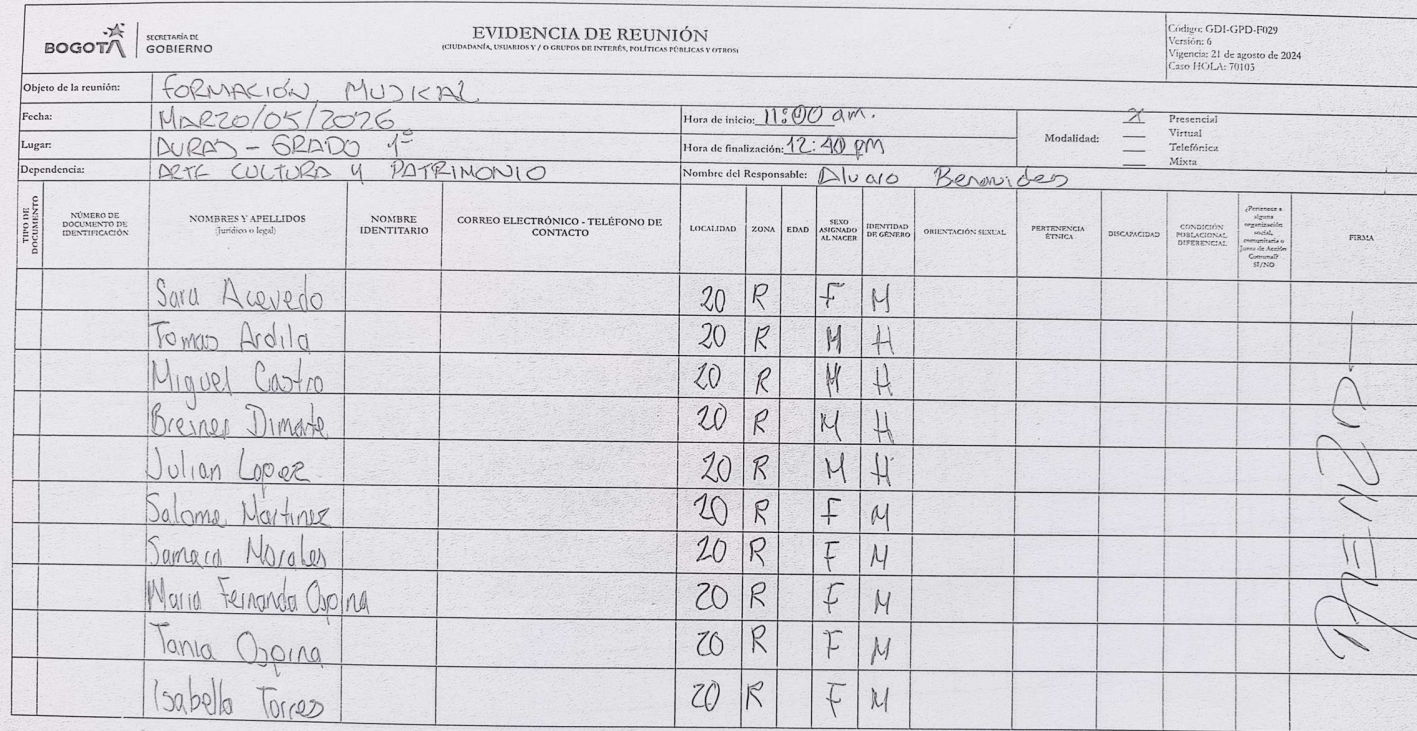 BOGOTÁ
SECRETARÍA DE
GOBIERNO
EVIDENCIA DE REUNIÓN
(CIUDADANÍA, USUARIOS Y / O GRUPOS DE INTERÉS, POLÍTICAS PÚBLICAS Y OTROS)
Código: GDI-GPD-F029
Versión: 6
Vigencia: 21 de agosto de 2024
Caso HOLA: 70103
Objeto de la reunión: FORMACIÓN MUSICAL
Fecha: MARZO/05/2026
Hora de inicio: 11:00 am.
Lugar: AURAS - GRADO 1º
Hora de finalización: 12:40 PM
Modalidad:
X Presencial
Virtual
Telefónica
Mixta
Dependencia: ARTE CULTURA Y PATRIMONIO
Nombre del Responsable: Alvaro Benavides
TIPO DE DOCUMENTO
NÚMERO DE DOCUMENTO DE IDENTIFICACIÓN
NOMBRES Y APELLIDOS (Jurídico o legal)
NOMBRE IDENTITARIO
CORREO ELECTRÓNICO - TELÉFONO DE CONTACTO
LOCALIDAD
ZONA
EDAD
SEXO ASIGNADO AL NACER
IDENTIDAD DE GÉNERO
ORIENTACIÓN SEXUAL
PERTENENCIA ÉTNICA
DISCAPACIDAD
CONDICIÓN POBLACIONAL DIFERENCIAL
¿Pertenece a alguna organización social, comunitaria o Junta de Acción Comunal? SI/NO
FIRMA
Sara Acevedo 20 R F M
Tomas Ardila 20 R M H
Miguel Castro 20 R M H
Breiner Dimate 20 R M H
Julian Lopez 20 R M H
Salome Martinez 20 R F M
Samara Morales 20 R F M
Maria Fernanda Ospina 20 R F M
Tania Ospina 20 R F M
Isabella Torres 20 R F M